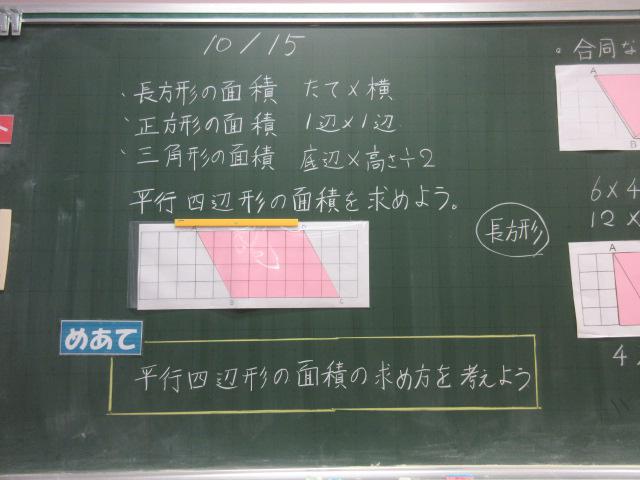 10/15
・長方形の面積 たて×横
・正方形の面積 1辺×1辺
・三角形の面積 底辺×高さ÷2
平行四辺形の面積を求めよう。
A
B
C
めあて
平行四辺形の面積の求め方を考えよう
・合同な
A
B
6×4
12×
長方形
A
4